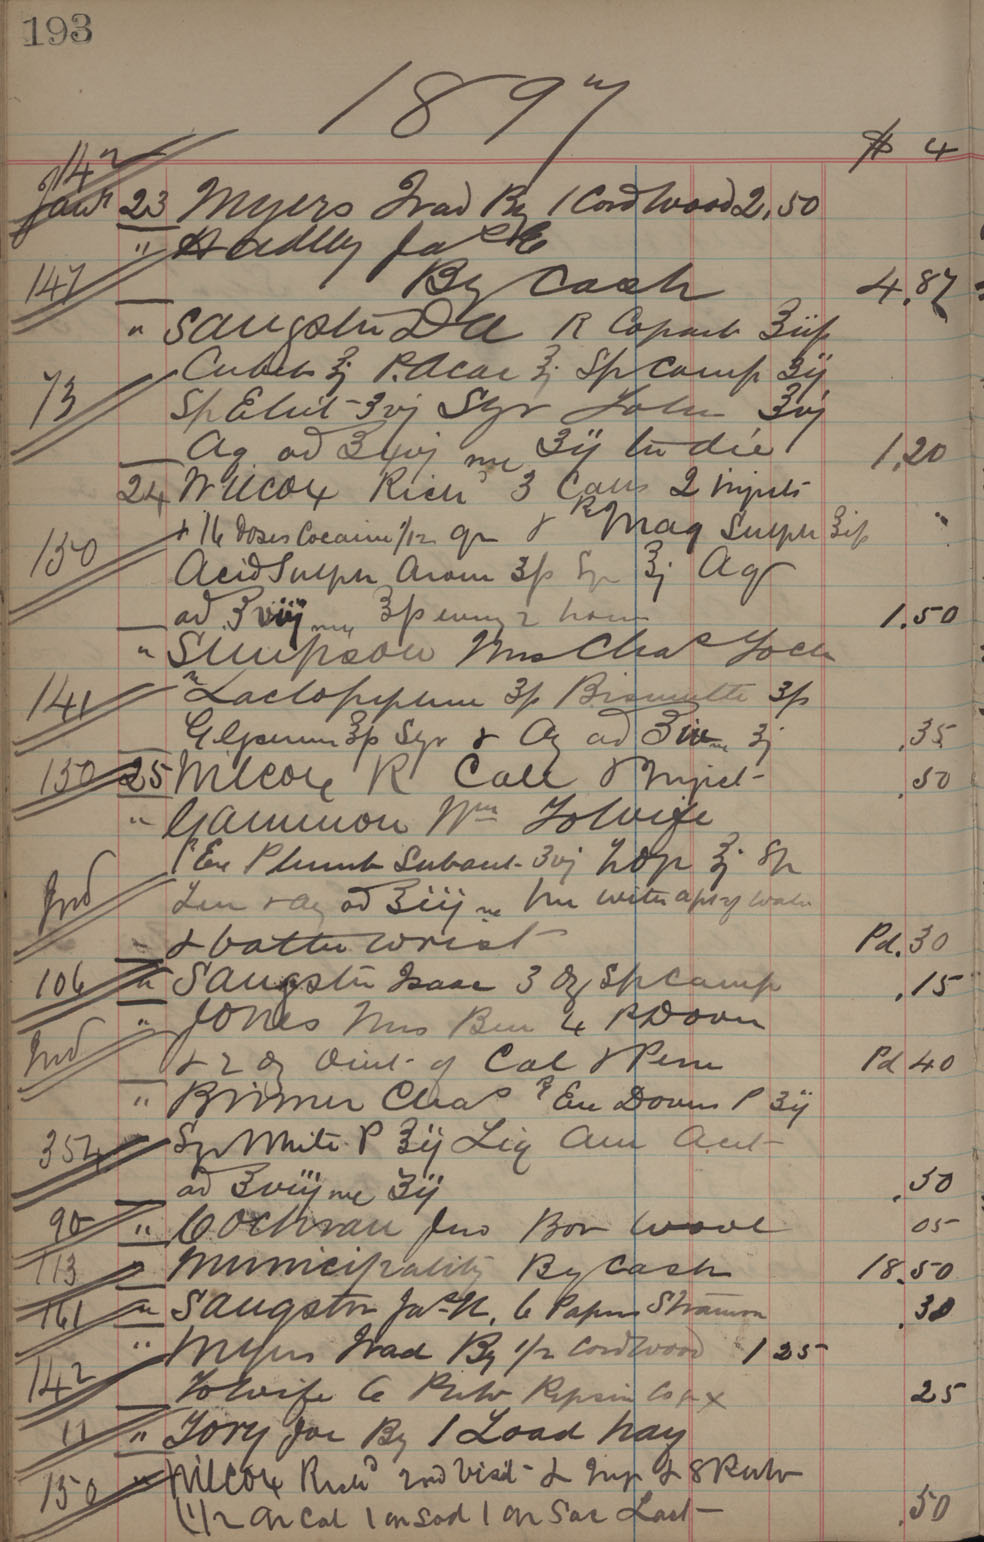 193
1897
$ 4
142
Jany 23 Myers Irad By 1 Cord Wood 2.50
" Hadley Jas E
147 By Cash 4.87
" Sangster D A R Copaib ʒiiſs
73 Cubeb ʒj P. Acac ʒj Sp Camp ʒij
Sp Eth Nit ʒvj Syr Tolu ʒvj
Aq ad ʒ me ʒij ter die 1.20
24 Wilcox Richd 3 Calls 2 injects
150 + 16 Doses Cocaine 1/12 gr & R Mag Sulph ʒiſs "
Acid Sulph Arom ʒſs Sp ʒj Aq
ad ʒviij me ʒſs every 2 hours 1.50
" Simpson Mrs Chas
141 Lactopeptine ʒſs Bismuth ʒſs
Glycerin ʒſs Syr & Aq ad ʒiv me ʒj .35
150 25 Wilcox R Call & Inject .50
" Gammon Wm To Wife
R Plumb Subact ʒvj ʒj Sp
Ind & Aq ad ʒiij me with water
& wrist Pd .30
106 " Sangster Isaac 3 oz Sp Camp .15
" Jones Mrs Ben 4 P Dover
Ind & 2 oz Oint of Cal & Pd 40
" Brimer Chas R Dovers P ʒij
354 Sp Nitr ʒij Liq Am Acet
ad ʒviij me ʒij .50
90 " Cochran Jno Box 05
113 " Municipality By Cash 18.50
161 " Sangster Jas N. 6 Papers Stramon .30
" Myers Irad By 1/2 Cord Wood 1 25
142 To Wife 6 Pulv Pepsin 25
11 " Tory Joe By 1 Load hay
150 " Wilcox Richd 2nd Visit & Inj & 8 Pulv
(1/2 gr Cal 1 gr Sod 1 gr Sac Lact .50